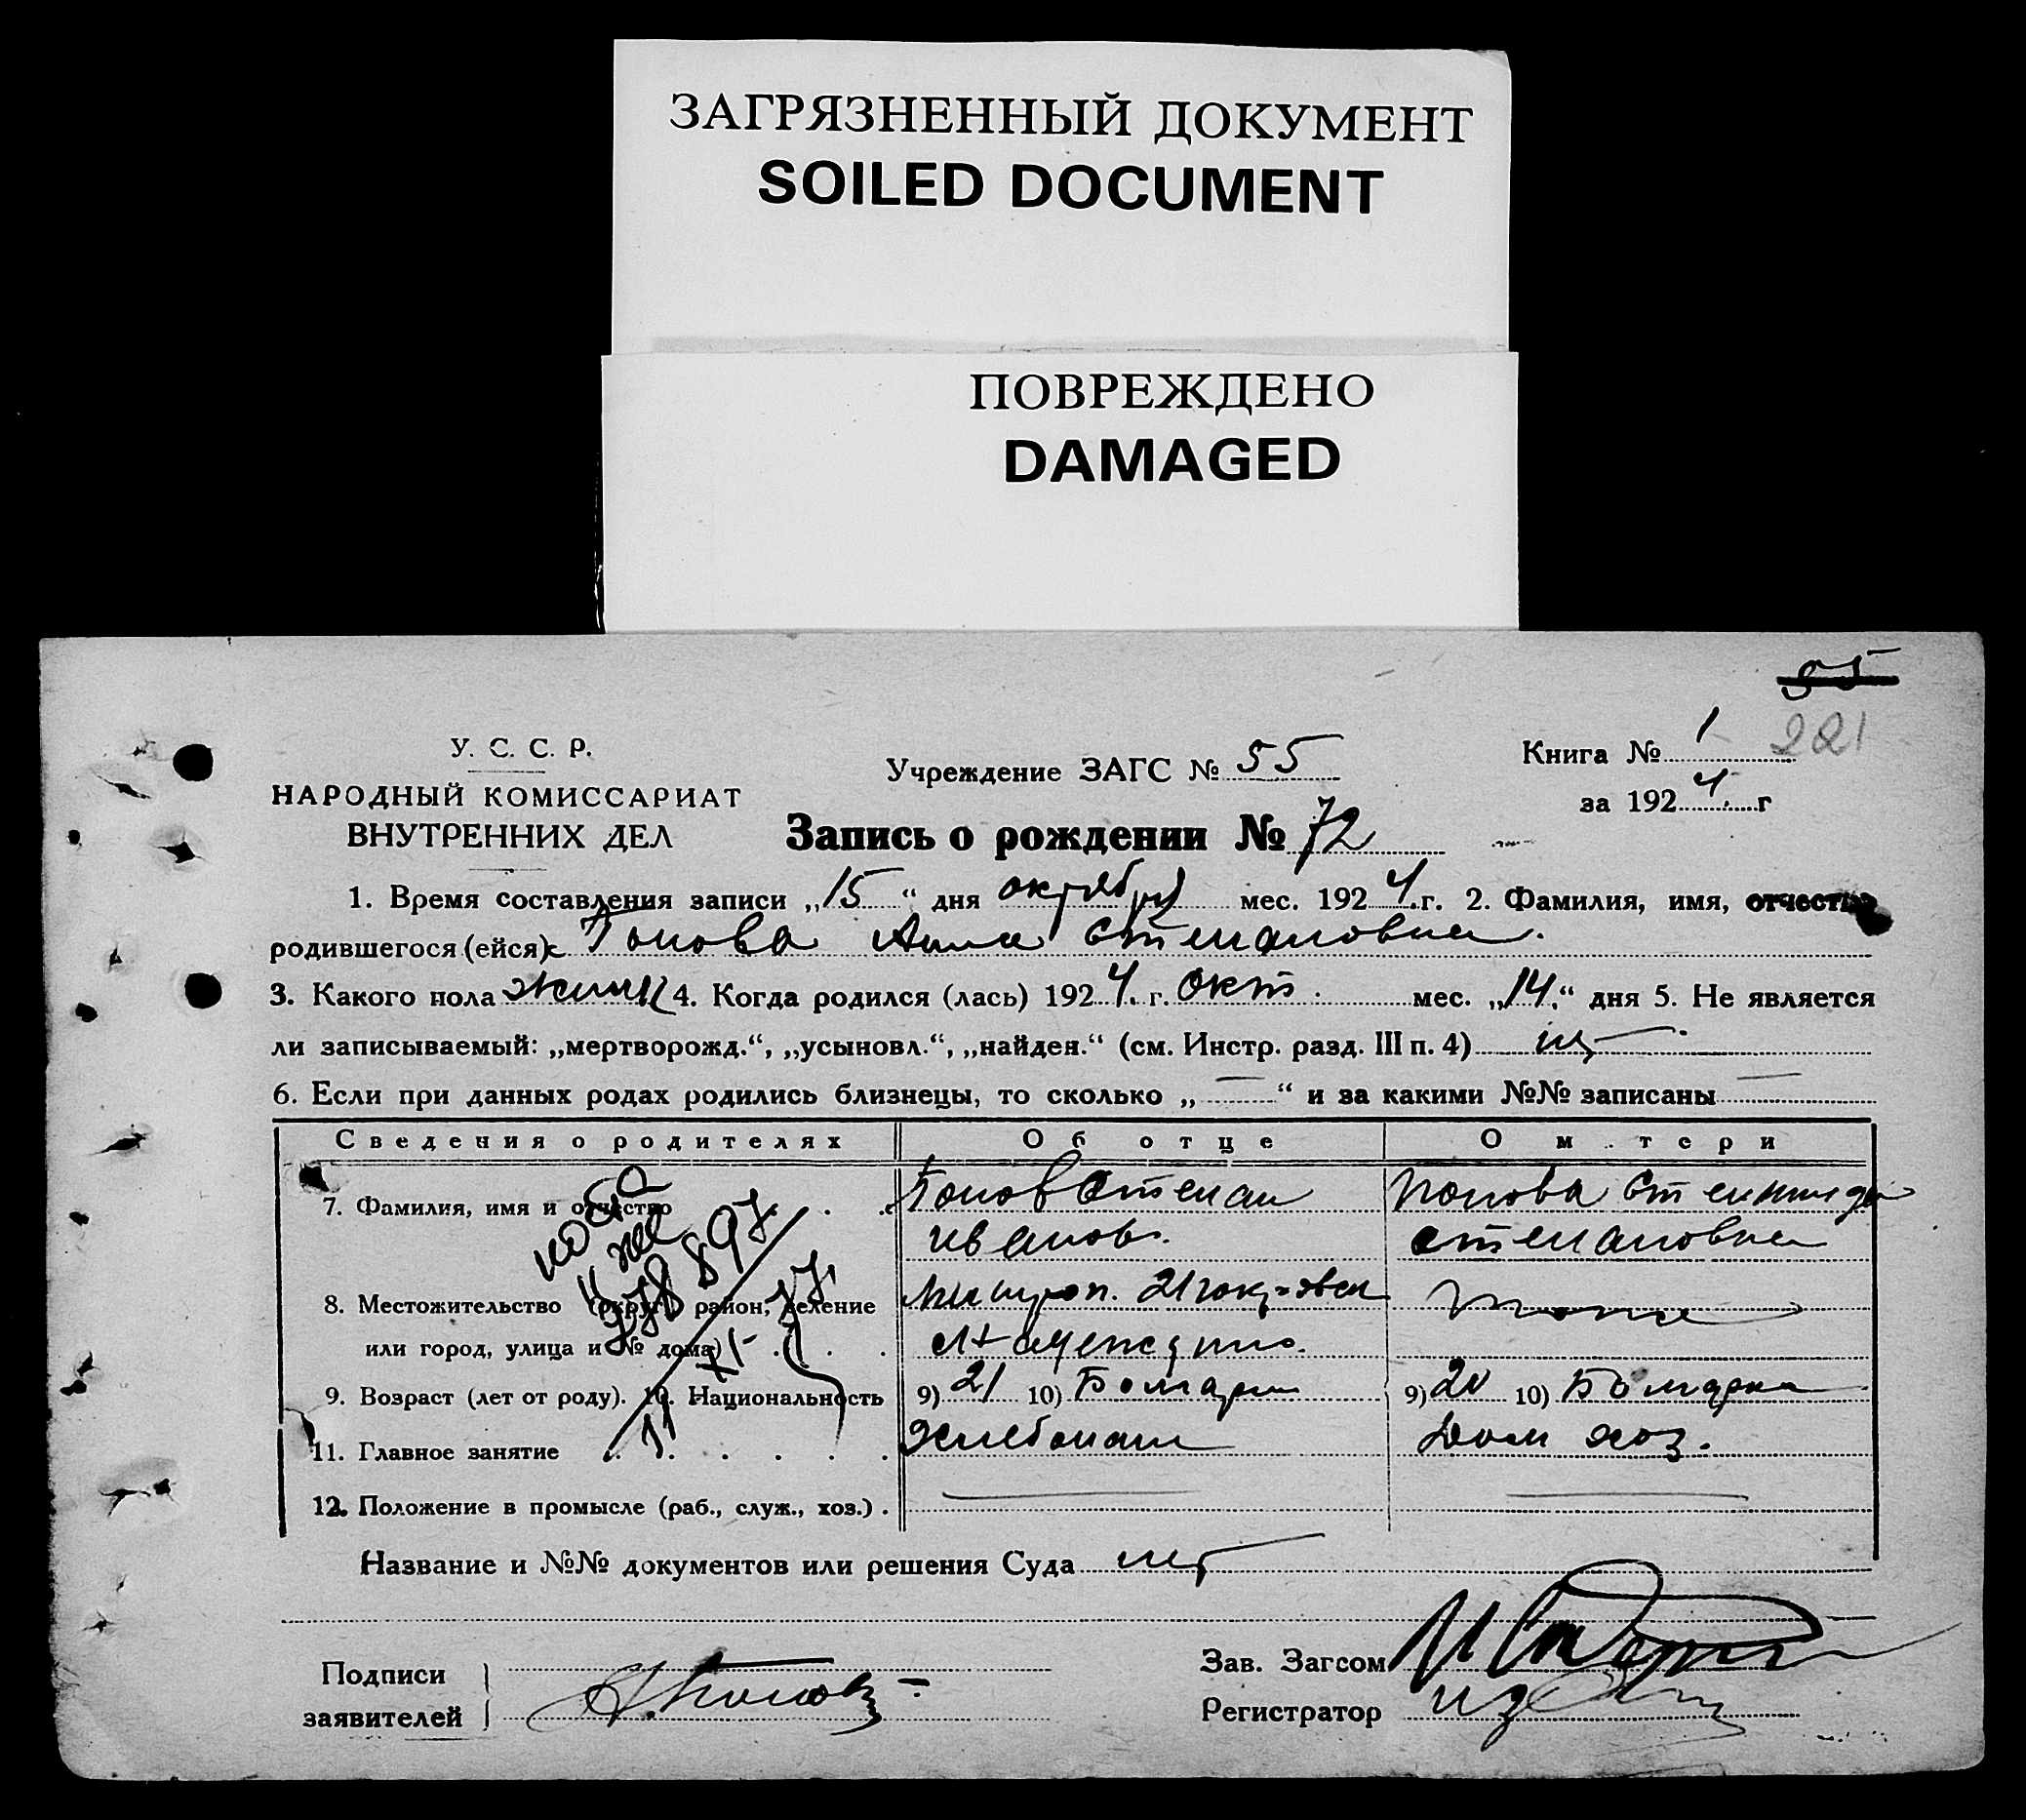 ЗАГРЯЗНЕННЫЙ ДОКУМЕНТ
SOILED DOCUMENT
ПОВРЕЖДЕНО
DAMAGED
55
221
У. С. С. Р.
НАРОДНЫЙ КОМИССАРИАТ
ВНУТРЕННИХ ДЕЛ
Учреждение ЗАГС № 55
Книга № 1
за 1924 г
Запись о рождении № 72
1. Время составления записи „15“ дня октября мес. 1924 г. 2. Фамилия, имя, отчество
родившегося (ейся) Попова Анна Степановна.
3. Какого пола женск 4. Когда родился (лась) 1924 г. Окт. мес. „14“ дня 5. Не является
ли записываемый: „мертворожд.“, „усыновл.“, „найден.“ (см. Инстр. разд. III п. 4) нет
6. Если при данных родах родились близнецы, то сколько „—“ и за какими №№ записаны —
Сведения о родителях Об отце О м тери
7. Фамилия, имя и отчество Попов Степан Попова Степанида
Иванов. Степановна
8. Местожительство (округ, район, селение
или город, улица и № дома)
9. Возраст (лет от роду). 10. Национальность 9) 21 10) Болгарин 9) 20 10) Болгарка
11. Главное занятие Хлебопаш Дом хоз.
12. Положение в промысле (раб., служ., хоз.) . — —
Название и №№ документов или решения Суда нет
Подписи
заявителей
Зав. Загсом
Регистратор